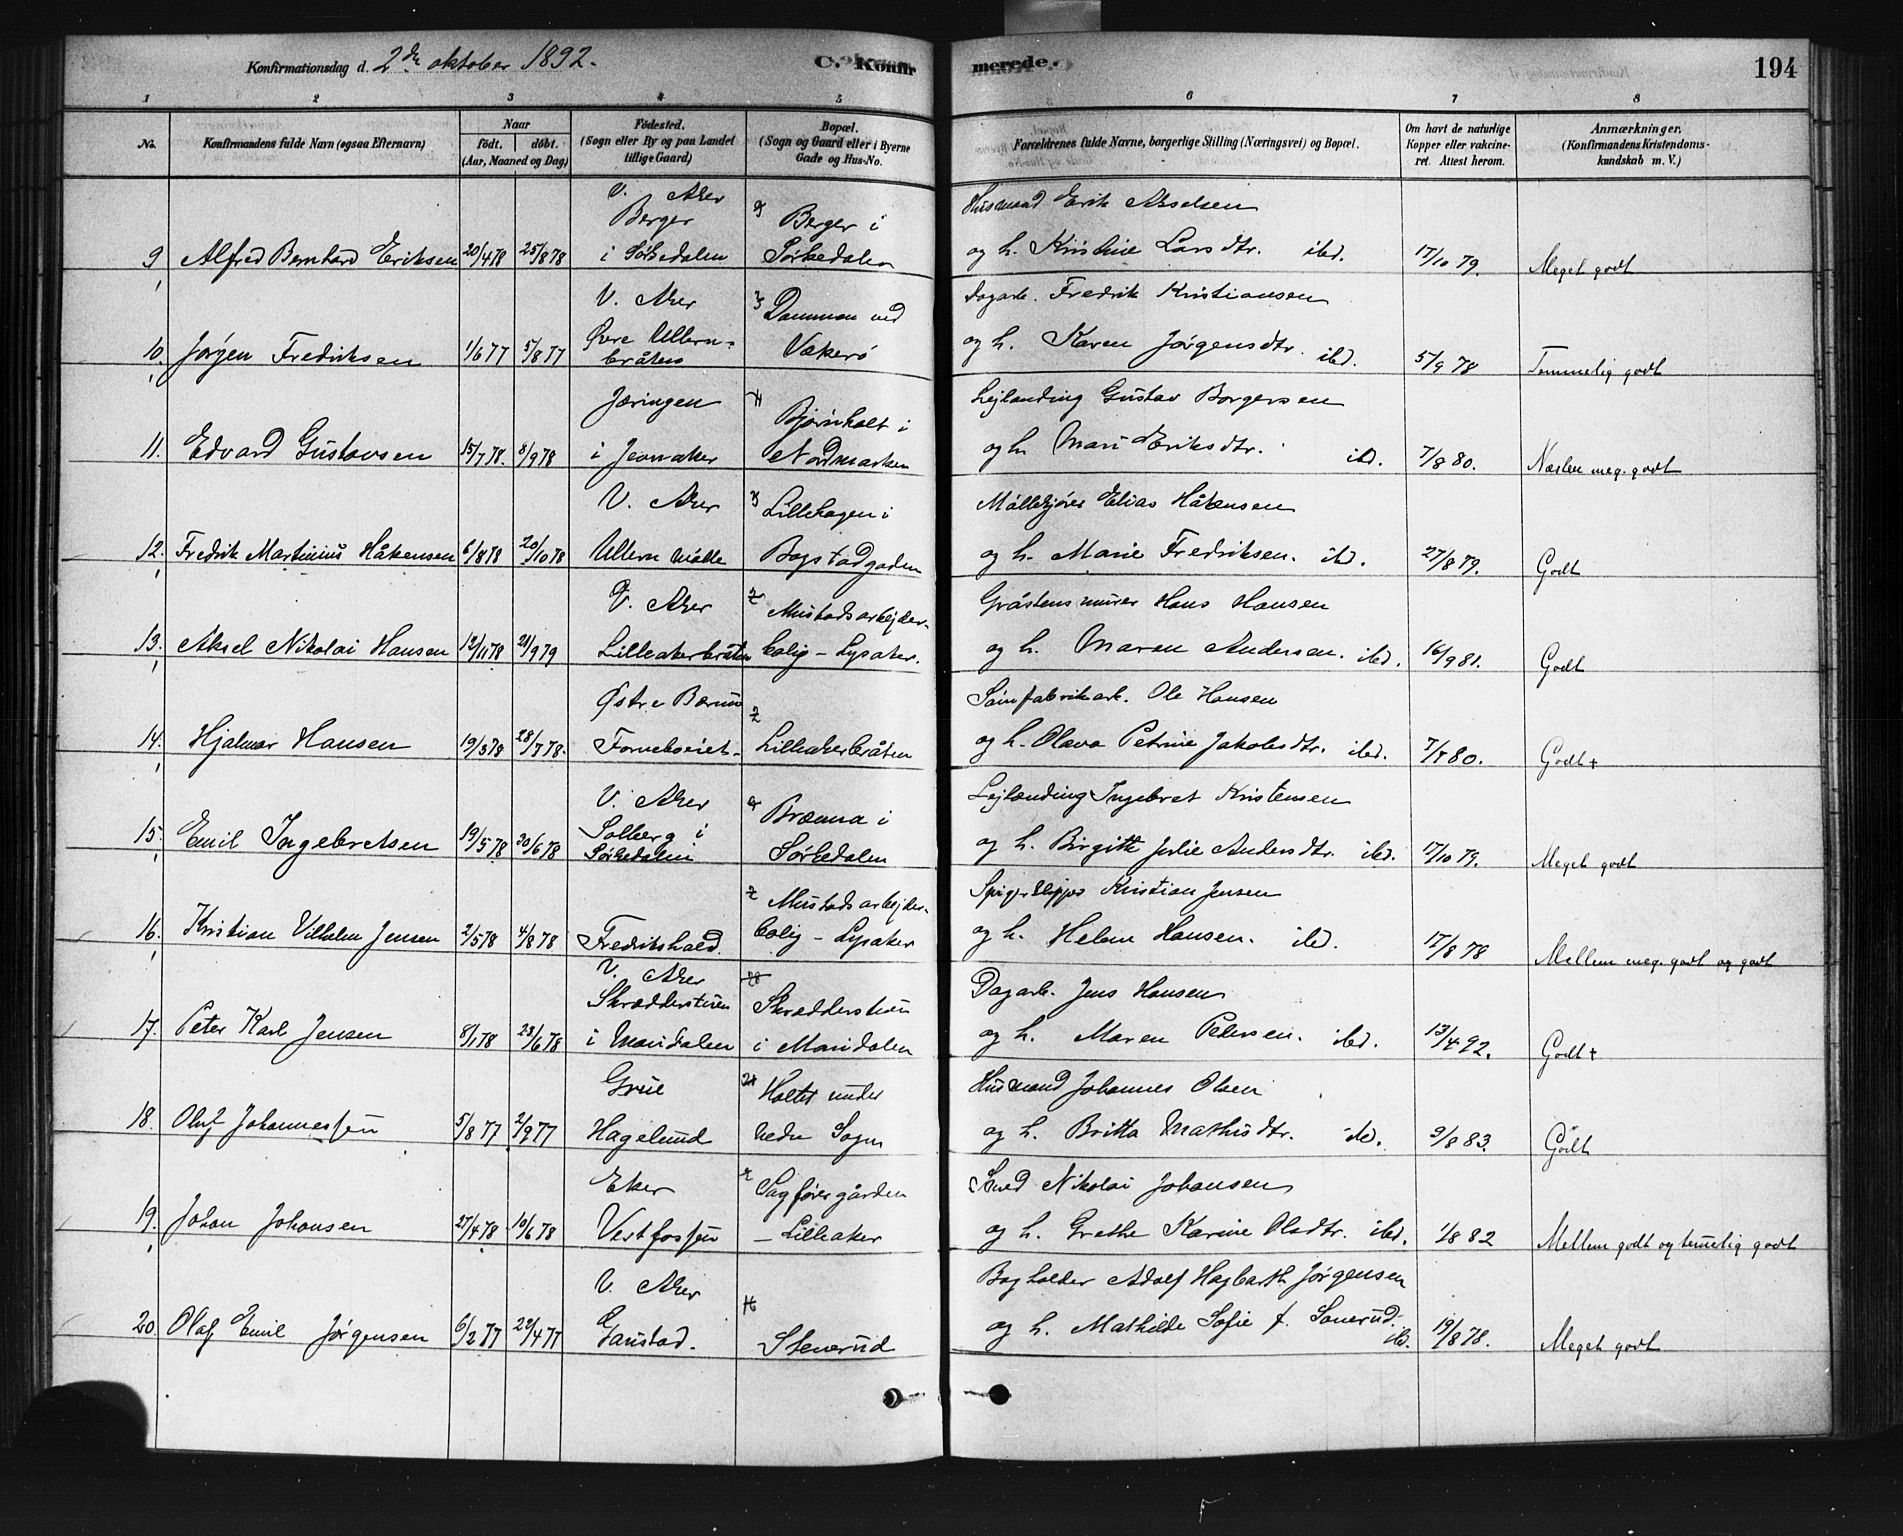 Konfirmationsdag d. 2den oktober 1892.
C. Konfirmerede.
194
1 2 3 4 5 6 7 8
No.
Konfirmandens fulde Navn (ogsaa Efternavn)
Naar
födt. döbt.
(Aar, Maaned og Dag)
Födested.
(Sogn eller By og paa Landet
tillige Gaard)
Bopæl.
(Sogn og Gaard eller i Byerne
Gade og Hus-No.
Forældrenes fulde Navne, borgerlige Stilling (Næringsvei) og Bopæl.
Om havt de naturlige
Kopper eller vakcine-
ret. Attest herom.
Anmærkninger.
(Konfirmandens Kristendoms-
kundskab m. V.)
V. Aker
Berger
Berger i
Husmand Erik Akselsen
9 Alfred Bernhard Eriksen 20/4 78 25/8 78 i Sørkedalen Sørkedalen og h. Kristine Larsdtr. ibd. 17/10 79. Meget godt
V. Aker
Dammen ved
Dagarb. Fredrik Kristiansen
Øvre Ullern-
10. Jørgen Fredriksen 1/6 77 5/8 77 bråten Vækerö og h. Karen Jørgensdtr. ibd. 5/9 78 Temmelig godt
Jæringen
Bjørnholt i
Lejlænding Gustav Borgersen
11. Edvard Gustavsen 15/7 78. 8/9 78 i Jevnaker Nordmarken og h. Mari Eriksdtr. ibd. 7/8 80. Næsten meg. godt
V. Aker
Lillehagen i
Møllekjører Elias Håkensen
12. Fredrik Martinius Håkensen 6/8 78 20/10 78 Ullern mølle Bogstadgaden og h. Marie Fredriksen. ibd. 27/8 79. Godt
V. Aker
Mustads arbejder-
Gråstensmurer Hans Hansen
13. Aksel Nikolai Hansen 12/11 78 21/9 79 Lilleakerbråten bolig - Lysaker. og h. Maren Andersen. ibd. 16/9 81. Godt
Østre Bærum
Sømfabrikarb. Ole Hansen
14. Hjalmar Hansen 19/3 78 28/7 78. Forneboeiet- Lilleakerbråten og h. Olava Petrine Jakobsdtr. ibd. 7/5 80. Godt+
V. Aker
Solberg i
Brænna i
Lejlænding Ingebret Kristensen
15. Emil Ingebretsen 19/5 78 30/6 78 Sørkedalen Sørkedalen og h. Birgitte Julie Andersdtr. ibd. 17/10 79. Meget godt
Mustads arbejder-
Spigerklipper Kristian Jensen
16. Kristian Vilhelm Jensen 2/5 78 4/8 78 Fredrikshald. bolig - Lysaker og h. Helene Hansen. ibd. 17/8 78 Mellem meg. godt og godt
V. Aker
Skrædderstuen
Skrædderstuen
Dagarb. Jens Hansen
17. Peter Karl Jensen 8/1 78 23/6 78 i Maridalen i Maridalen og h. Maren Petersen. ibd. 13/4 92. Godt+
Grue
Holtet under
Husmand Johannes Olsen
18. Oluf Johannessen 5/8 77 2/9 77 Hagelund Nedre Sogn og h. Britta Mathisdtr. ibd. 9/8 83. Godt
Eker
Sagførergården
Smed Nikolai Johansen
19. Johan Johansen 27/4 78 10/6 78 Vestfossen - Lilleaker og h. Grethe Karine Olsdtr. ibd. 1/8 82 Mellem godt og temelig godt
V. Aker
Bogholder Adolf Hagbarth Jørgensen
20. Olaf Emil Jørgensen 6/2 77 22/4 77 Gaustad. Stenerud og h. Mathilde Sofie f. Sonerud. ibd. 19/8 78. Meget godt